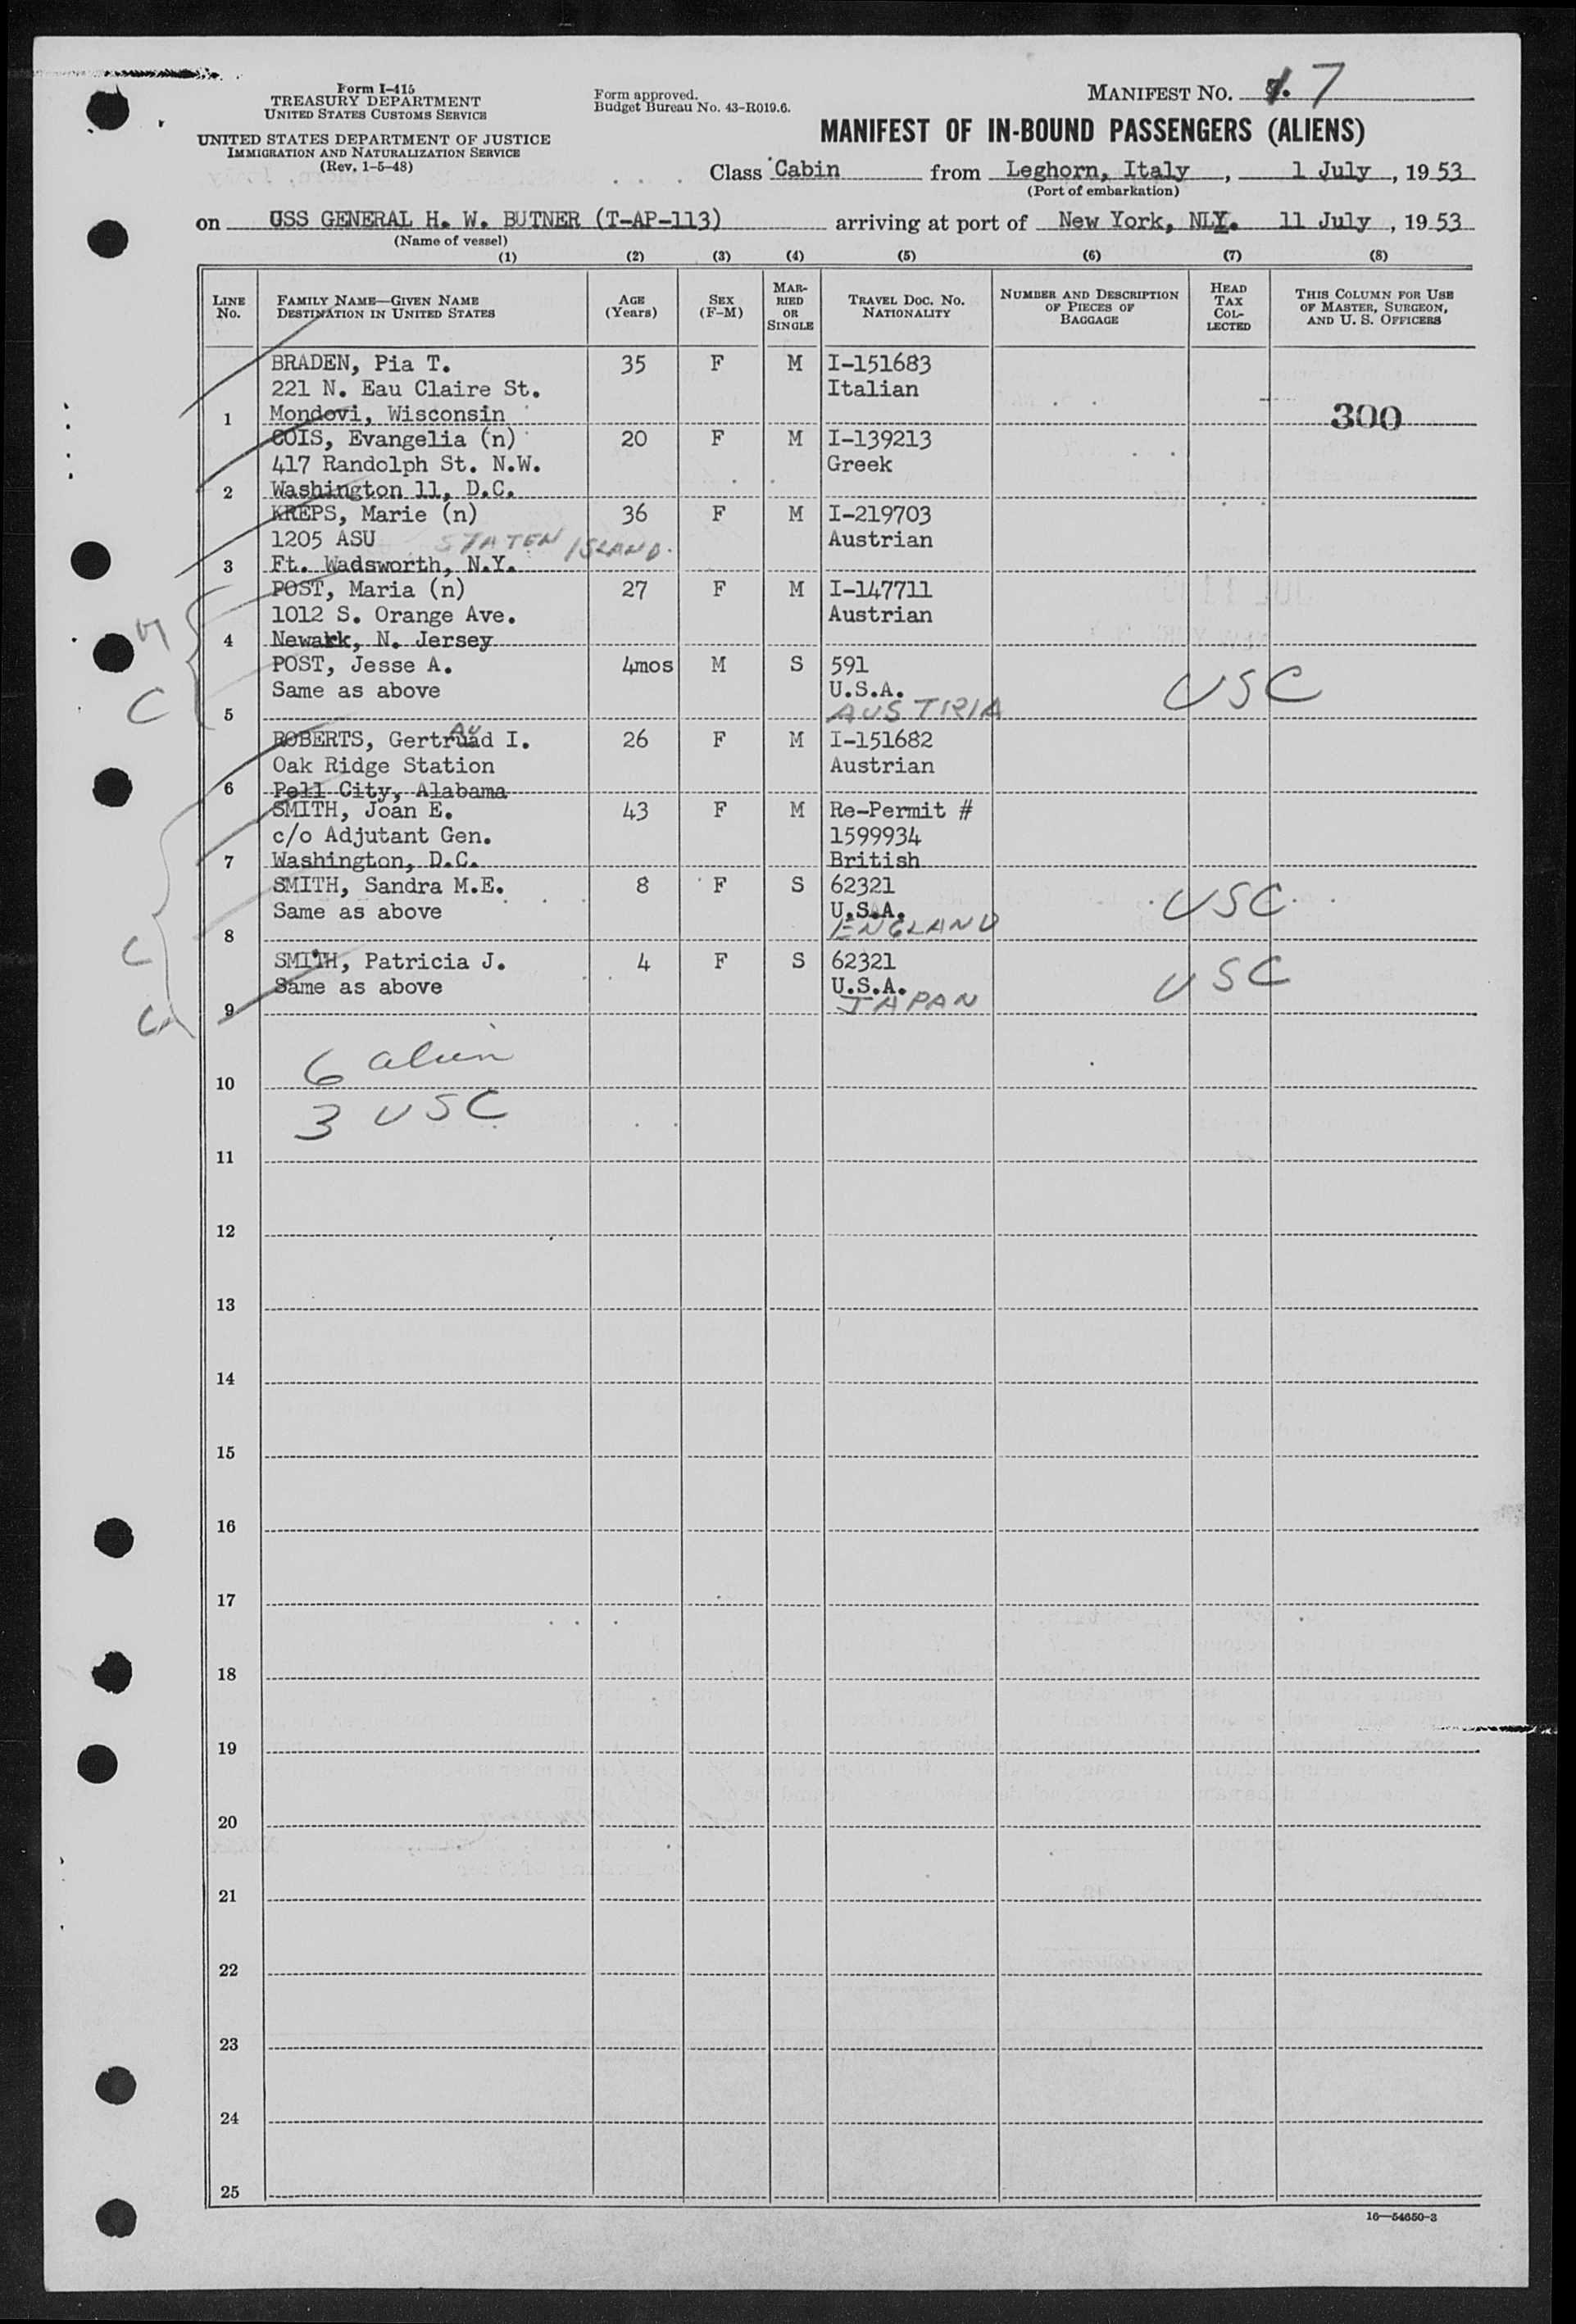 Form I-415
TREASURY DEPARTMENT
UNITED STATES CUSTOMS SERVICE
UNITED STATES DEPARTMENT OF JUSTICE
IMMIGRATION AND NATURALIZATION SERVICE
(Rev. 1-5-48)
Form approved.
Budget Bureau No. 43-R019.6.
MANIFEST NO. 7
MANIFEST OF IN-BOUND PASSENGERS (ALIENS)
Class Cabin from Leghorn, Italy, 1 July, 1953
(Port of embarkation)
on USS GENERAL H. W. BUTNER (T-AP-113) arriving at port of New York, N.Y. 11 July, 1953
(Name of vessel)
(1) (2) (3) (4) (5) (6) (7) (8)
LINE No. FAMILY NAME—GIVEN NAME DESTINATION IN UNITED STATES AGE (Years) SEX (F-M) MARRIED OR SINGLE TRAVEL DOC. NO. NATIONALITY NUMBER AND DESCRIPTION OF PIECES OF BAGGAGE HEAD TAX COLLECTED THIS COLUMN FOR USE OF MASTER, SURGEON, AND U. S. OFFICERS
BRADEN, Pia T. 35 F M I-151683
221 N. Eau Claire St. Italian
1 Mondovi, Wisconsin 300
COIS, Evangelia (n) 20 F M I-139213
417 Randolph St. N.W. Greek
2 Washington 11, D.C.
KREPS, Marie (n) 36 F M I-219703
1205 ASU STATEN ISLAND. Austrian
3 Ft. Wadsworth, N.Y.
POST, Maria (n) 27 F M I-147711
1012 S. Orange Ave. Austrian
4 Newark, N. Jersey
POST, Jesse A. 4mos M S 591
Same as above U.S.A. USC
C 5 AUSTRIA
ROBERTS, Gertruad I. 26 F M I-151682
AU
Oak Ridge Station Austrian
6 Pell City, Alabama
SMITH, Joan E. 43 F M Re-Permit #
c/o Adjutant Gen. 1599934
7 Washington, D.C. British
SMITH, Sandra M.E. 8 F S 62321
Same as above U.S.A. USC
C 8 ENGLAND
SMITH, Patricia J. 4 F S 62321
Same as above U.S.A. USC
C 9 JAPAN
6 alien
10
3 USC
11
12
13
14
15
16
17
18
19
20
21
22
23
24
25
16—54650-3